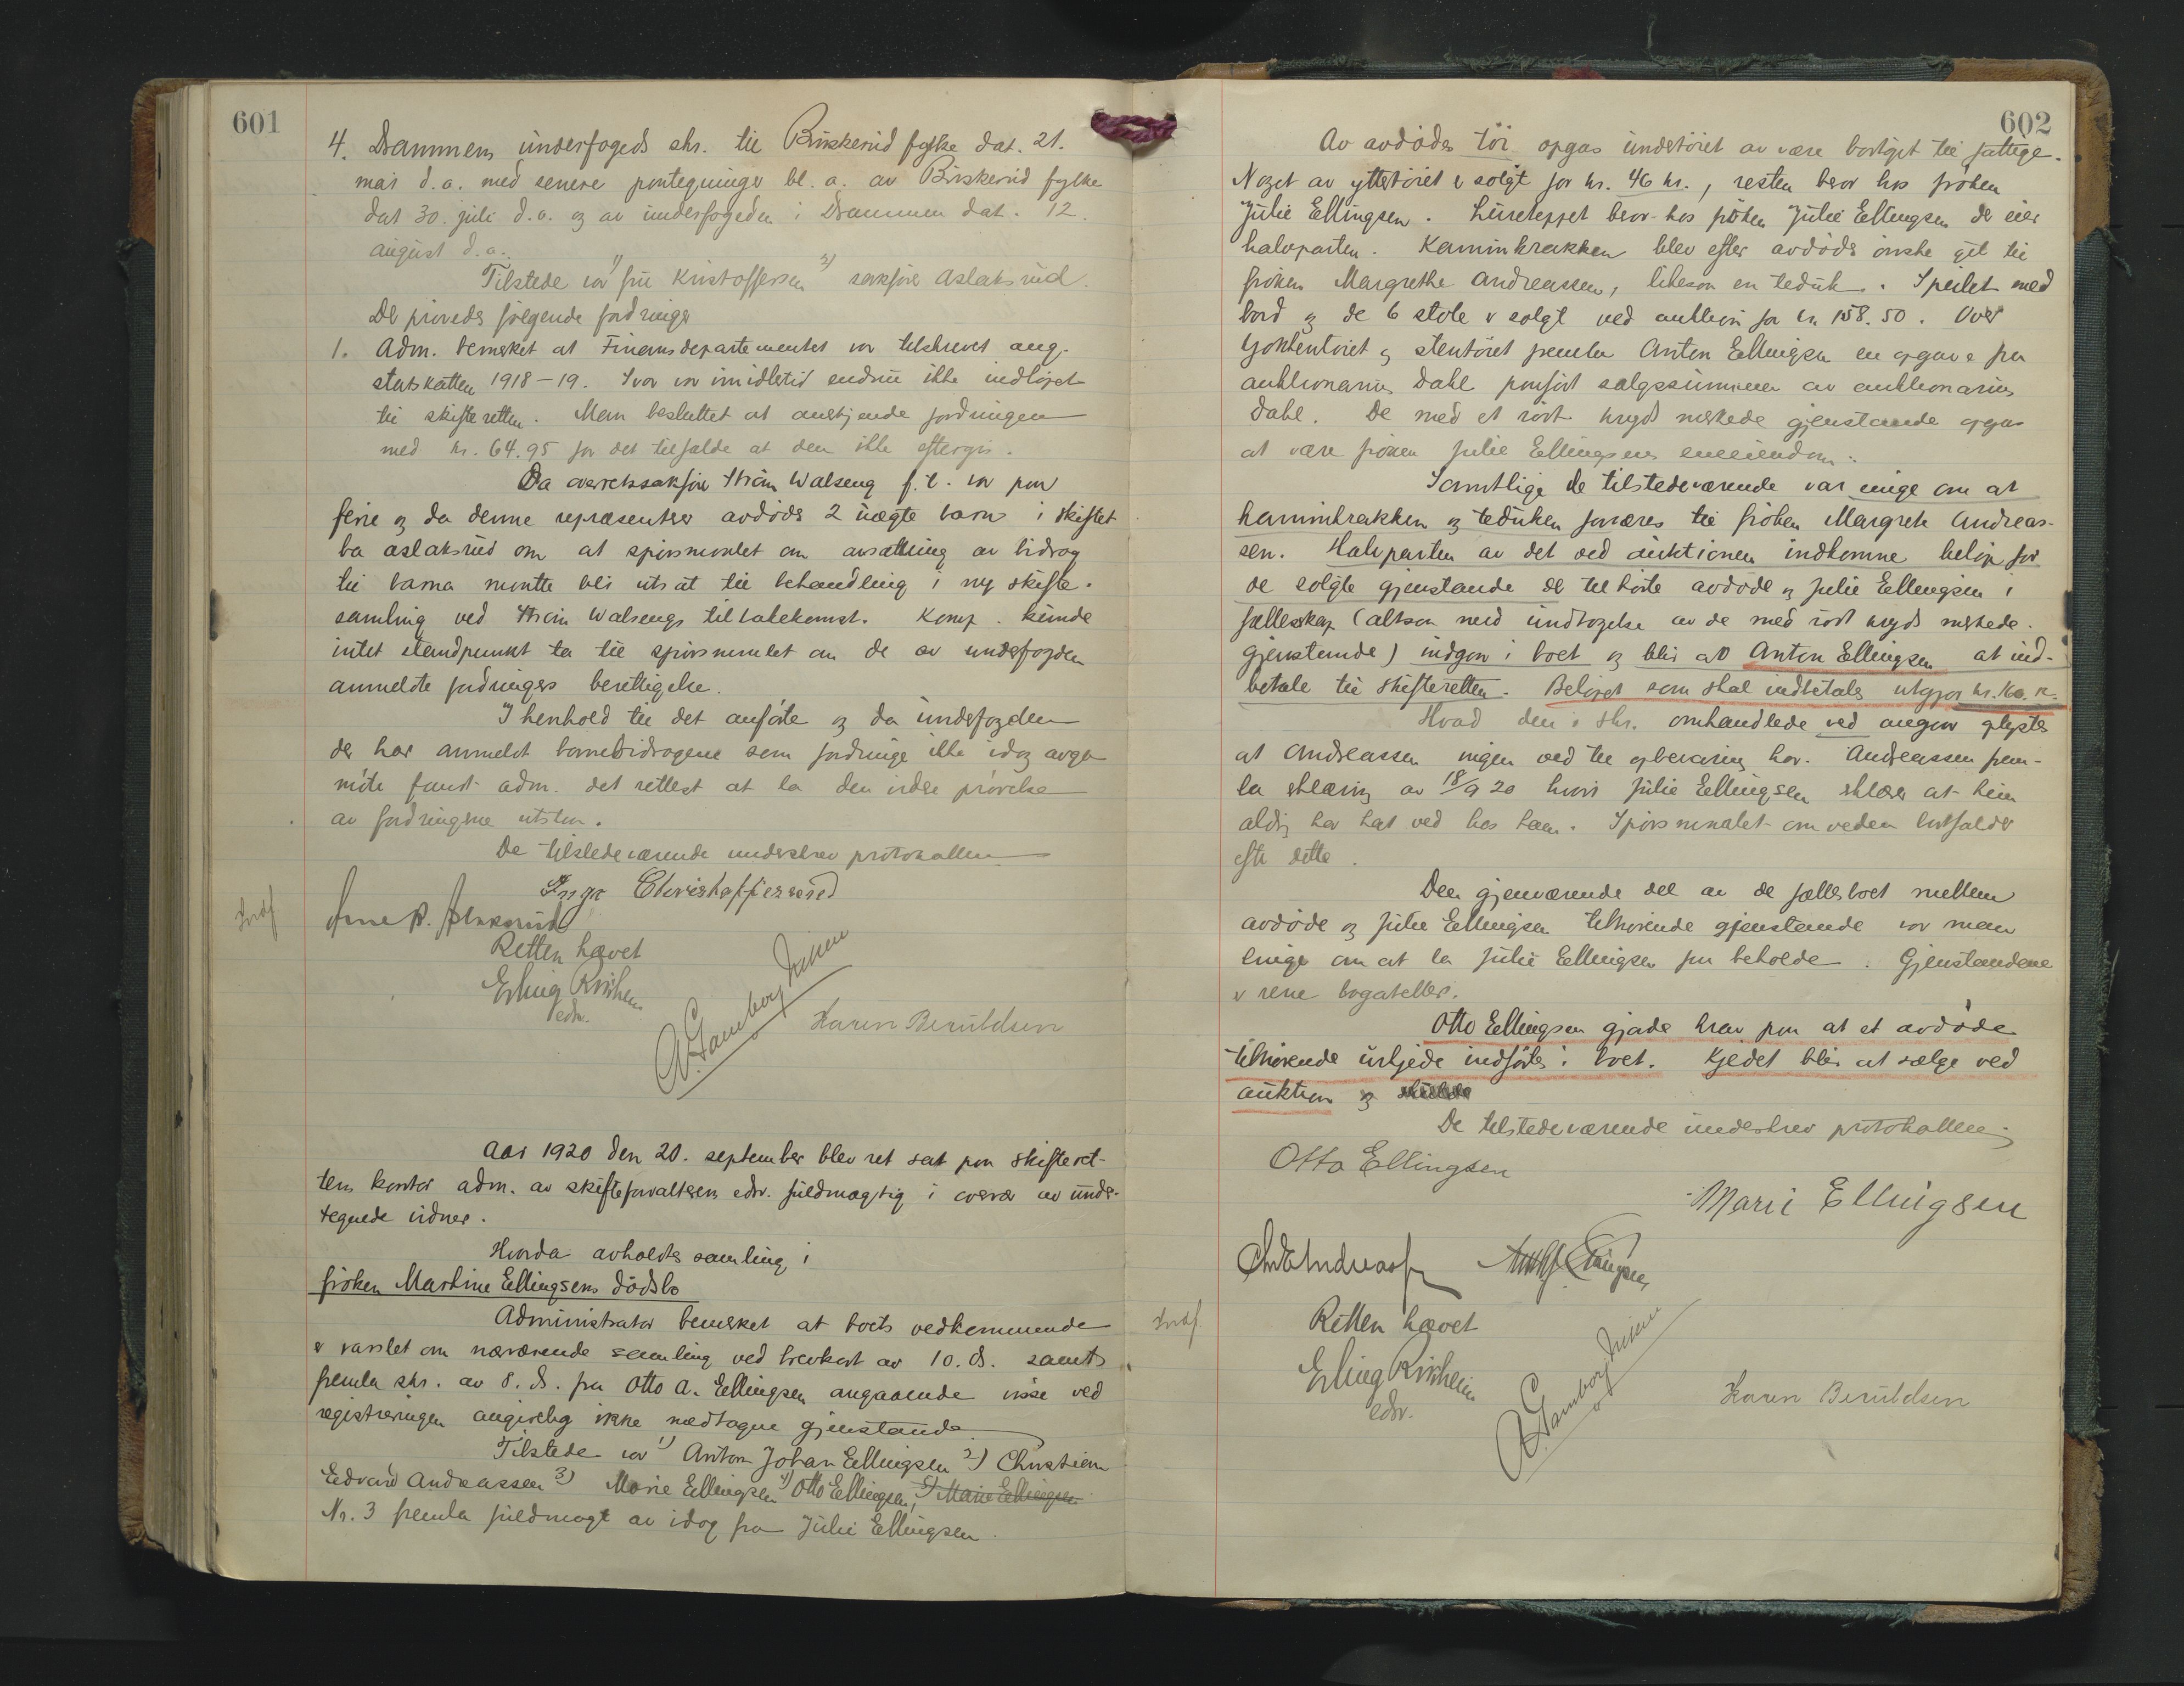 601
4. Drammens underfogeds skr. til Buskerud fylke dat. 21.
mai d.a. med senere paategninger bl.a. av Buskerud fylke
dat 30. juli d.a. og av underfogden i Drammen dat. 12.
august d.a.
Tilstede var 1) fru Kristoffersen 2) sakfører Aslaksrud.
De prøvedes følgende fordringer
1. Adm. bemerket at Finansdepartementet var tilskrevet ang.
statskatten 1918-19. Svar var imidlertid endnu ikke indløpet
til skifteretten. Man besluttet at anerkjende fordringen
med kr. 64.95 for det tilfælde at den ikke eftergis.
Da overretssakfører Walseng f.t. var paa
ferie og da denne repræsenterer avdødes 2 uegte barn i skiftet
ba Aslaksrud om at spørsmaalet om ansættelse av bidrag
til barna maatte bli utsat til behandling i ny skifte-
samling ved Walsengs tilbakekomst. Komp. kunde
intet standpunkt ta til spørsmaalet om de av underfogden
anmeldte fordringers berettigelse.
I henhold til det anførte og da underfogden
der har anmeldt barnebidragene som fordringer ikke idag avga
møte fandt adm. det rettest at la den videre prøvelse
av fordringene utstaa.
De tilstedeværende underskrev protokollen
Inga Christoffersen
Arne B. Aslaksrud
Indf
Retten hævet
Erling Kirkheim
edv.
Karen Beruldsen
Aar 1920 den 20. september blev ret sat paa skifteret-
tens kontor adm. av skifteforvalterens edsv. fuldmægtig i overvær av under-
tegnede vidner.
Hvorda avholdtes samling i
frøken Martine Ellingsens dødsbo
Administrator bemerket at boets vedkommende
er varslet om nærværende samling ved brevkort av 10. ds. samt
fremla skr. av 8. ds. fra Otto A. Ellingsen angaaende visse ved
registreringen angivelig ikke medtagne gjenstande.
Tilstede var 1) Anton Johan Ellingsen 2) Christian
Edvard Andreassen 3) Marie Ellingsen 4) Otto Ellingsen, 5) Marie Ellingsen
Nr. 3 fremla fuldmagt av idag fra Julie Ellingsen.
602
Av avdødes tøi opgas undertøiet av være bortgit til fattige.
Noget av yttertøiet er solgt for kr. 46 kr., resten beror hos frøken
Julie Ellingsen. Liureteppet beror hos frøken Julie Ellingsen der eier
halvparten. Kaminkrakken blev efter avdødes ønske git til
frøken Margrethe Andreassen, likesom en teduk. Speilet med
bord og de 6 stole er solgt ved auktion for kr. 158.50. Over
kjøkkentøiet og stentøiet fremla Anton Ellingsen en opgave fra
auktionarius Dahl paaført salgssummene av auktionarius
Dahl. De med et rødt kryds merkede gjenstande opgas
at være frøken Julie Ellingsens eneeiendom.
Samtlige de tilstedeværende var enige om at
kaminkrakken og teduken foræres til frøken Margrete Andreas-
sen. Halvparten av det ved auktionen indkomne beløp for
de solgte gjenstande der tilhørte avdøde og Julie Ellingsen i
fællesskap (altsaa med undtagelse av de med rødt kryds merkede
gjenstande) indgaar i boet og blir av Anton Ellingsen at ind-
betale til skifteretten. Beløpet som skal indbetales utgjør kr.
Hvad den i skr. omhandlede ved angaar oplystes
at Andreassen ingen ved til opbevaring har. Andreassen frem-
la erklæring av 18/9 20 hvori Julie Ellingsen erklærer at hun
aldrig har hat ved hos ham. Spørsmaalet om veden bortfalder
efter dette.
Den gjenværende del av de fællesboet mellem
avdøde og Julie Ellingsen tilhørende gjenstande var man
enige om at la Julie Ellingsen faa beholde. Gjenstandene
er rene bagateller.
Otto Ellingsen gjorde krav paa at et avdøde
tilhørende urkjede indføres i boet. Kjedet blir at sælge ved
auktion og
De tilstedeværende underskrev protokollen
Otto Ellingsen
Marie Ellingsen
Chr E Andreassen
Ellingsen
Indf.
Retten hævet
Erling Kirkheim
edsv.
Karen Beruldsen